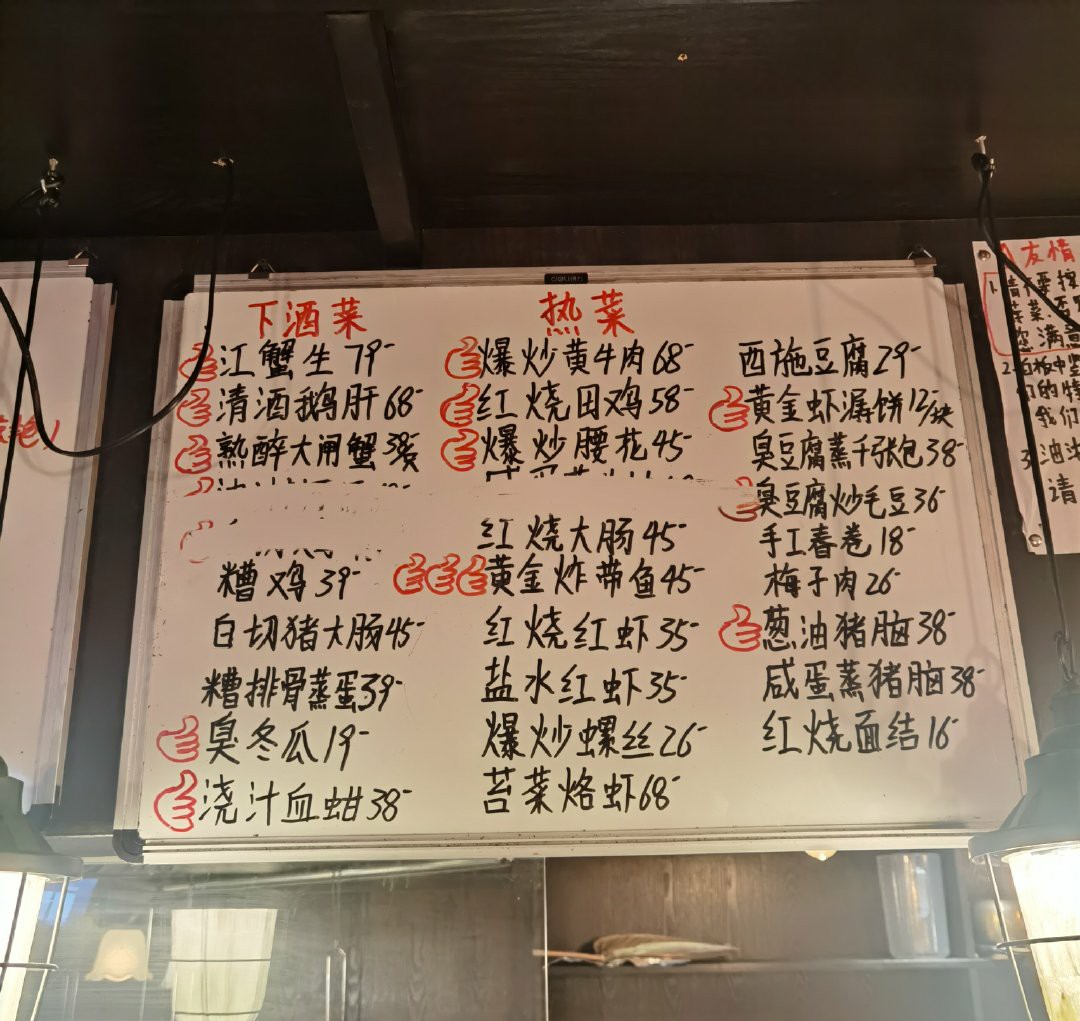 下酒菜
江蟹生79-
清酒鹅肝68-
熟醉大闸蟹38-
糟鸡39-
白切猪大肠45-
糟排骨蒸蛋39-
臭冬瓜19-
浇汁血蚶38-
热菜
爆炒黄牛肉68-
红烧田鸡58-
爆炒腰花45-
红烧大肠45-
黄金炸带鱼45-
红烧红虾35-
盐水红虾35-
爆炒螺丝26-
苔菜烙虾68-
西施豆腐29-
黄金虾潺饼12/块
臭豆腐蒸千张包38-
臭豆腐炒毛豆36
手工春卷18-
梅子肉26-
葱油猪脑38-
咸蛋蒸猪脑38-
红烧面结16-
友情
满意
板中
的特
我们
油
请